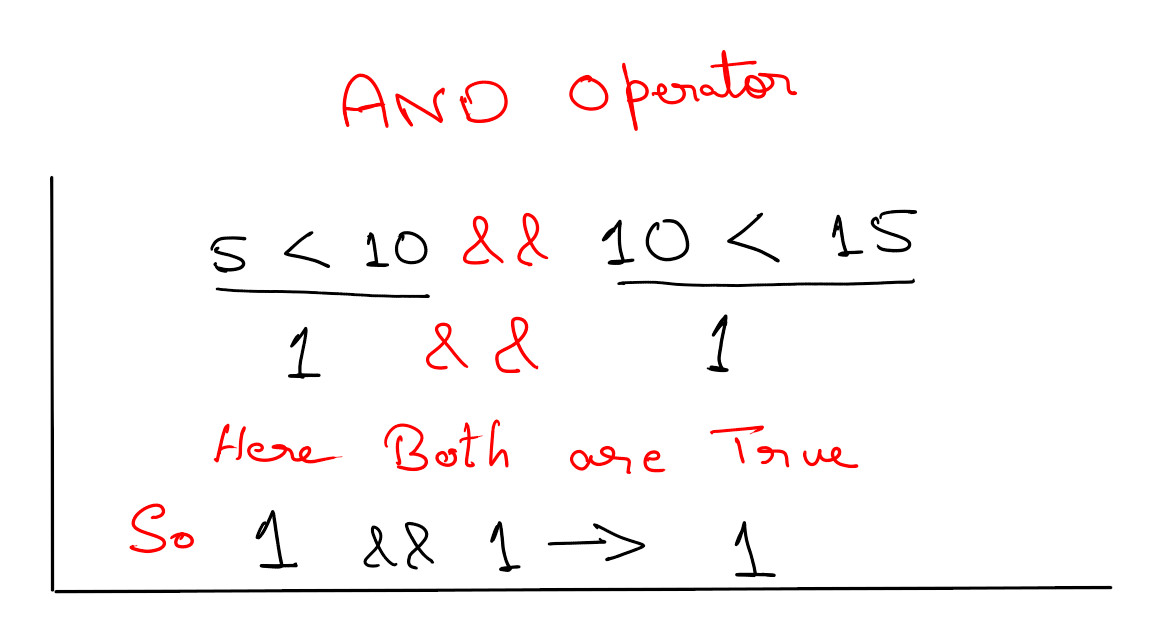 AND Operator
5 < 10 && 10 < 15
1 && 1
Here Both are True
So 1 && 1 → 1